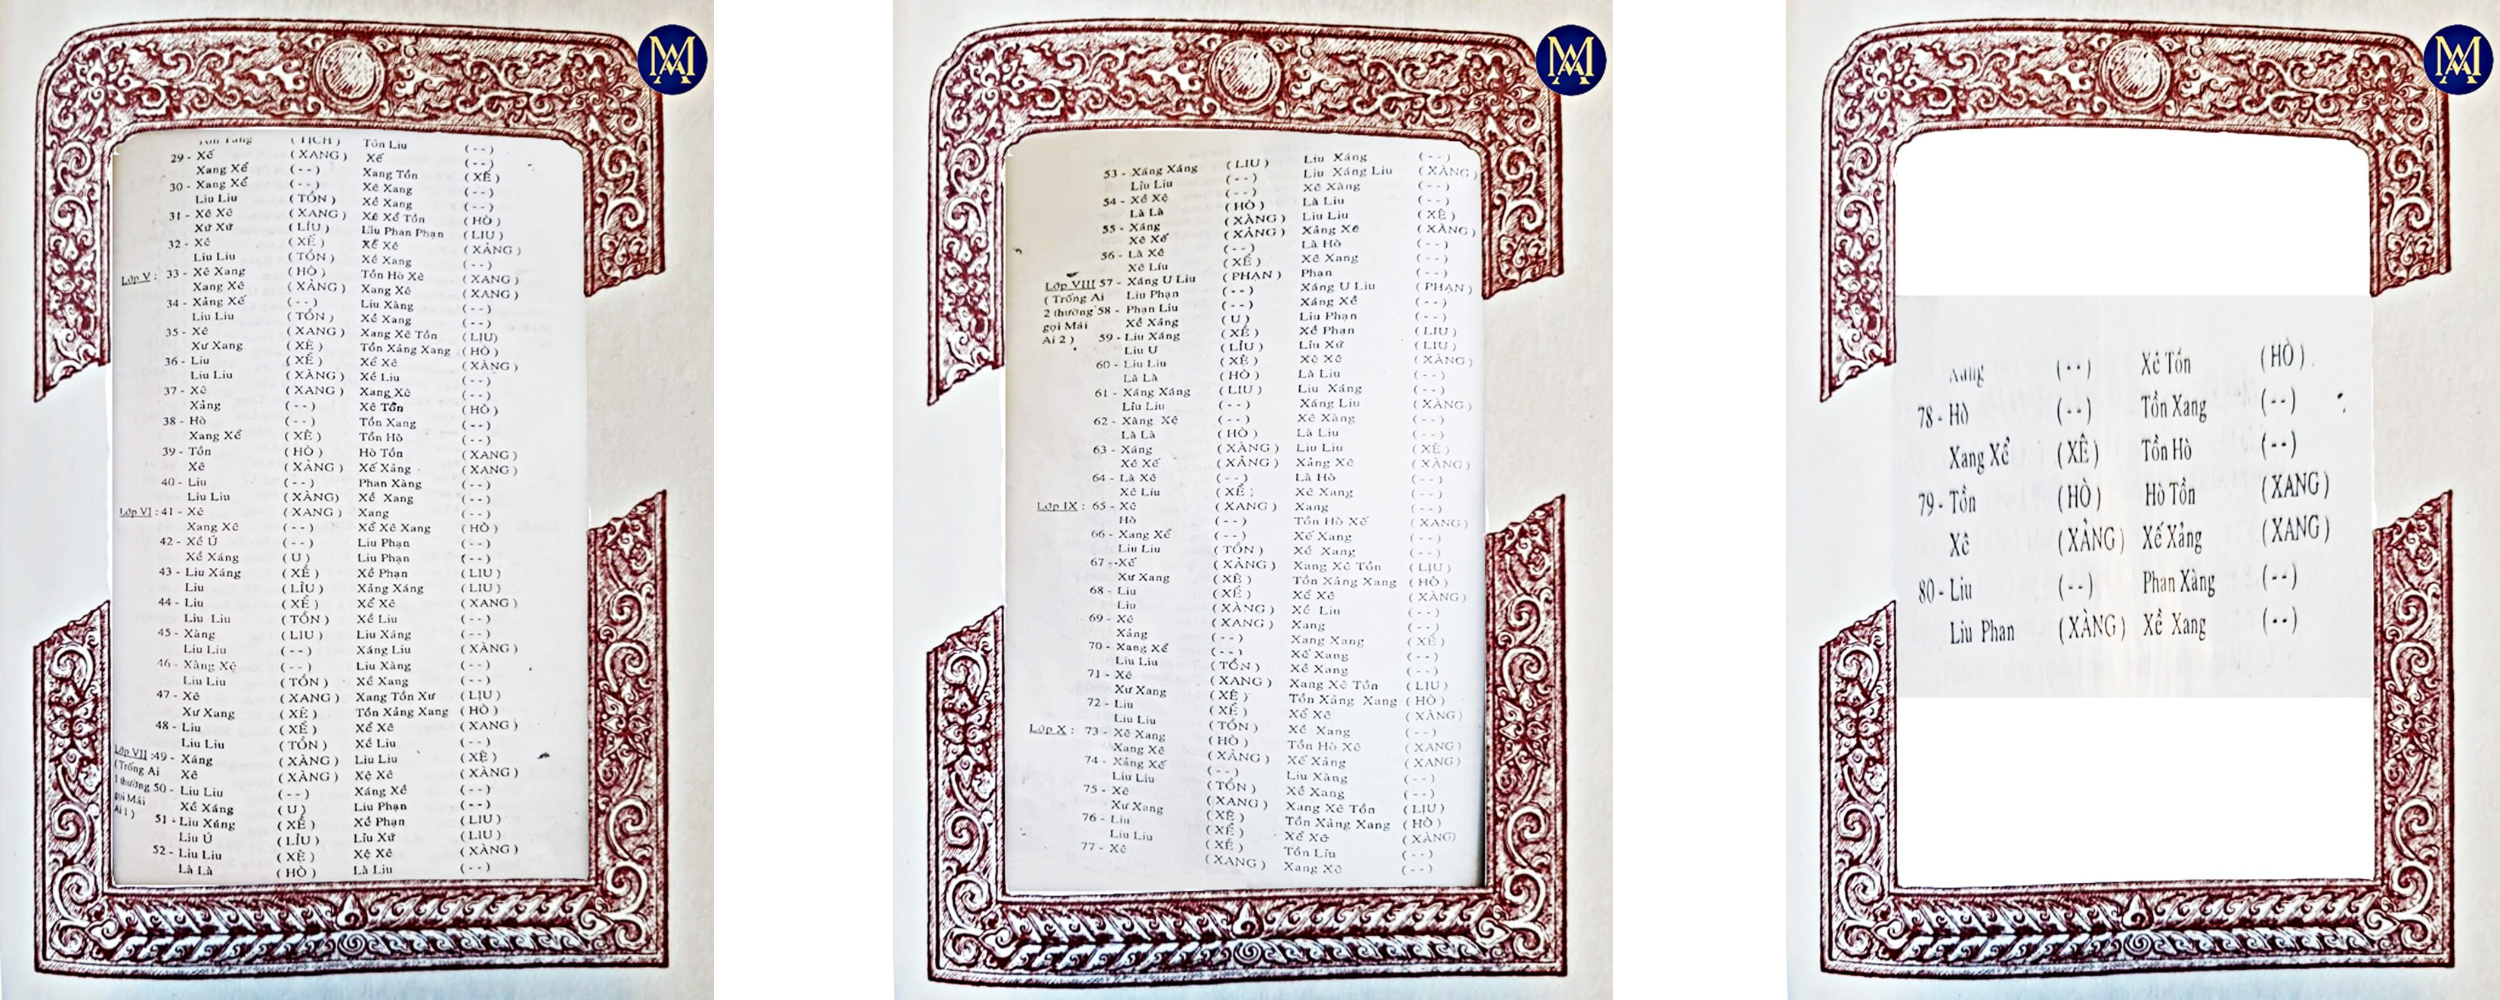 Tồn Tang ( TỊCH ) Tồn Liu (--)
29 - Xế (XANG) Xế (--)
Xang Xể (--) Xang Tồn (XỀ)
30 - Xang Xể (--) Xê Xang (--)
Liu Liu (TỒN) Xề Xang (--)
31 - Xê Xê (XANG) Xê Xể Tồn (HÒ)
Xứ Xứ (LÍU) Lỉu Phan Phạn (LIU)
32 - Xê (XỂ) Xể Xê (XẢNG)
Liu Liu (TỒN) Xề Xang (--)
Lớp V : 33 - Xê Xang (HÒ) Tồn Hò Xê (XANG)
Xang Xê (XẢNG) Xang Xê (XANG)
34 - Xảng Xế (--) Liu Xàng (--)
Liu Liu (TỒN) Xề Xang (--)
35 - Xê (XANG) Xang Xê Tồn (LIU)
Xư Xang (XÊ) Tồn Xảng Xang (HÒ)
36 - Liu (XỂ) Xể Xê (XÀNG)
Liu Liu (XÀNG) Xề Liu (--)
37 - Xê (XANG) Xang Xê (--)
Xảng (--) Xê Tồn (HÒ)
38 - Hò (--) Tồn Xang (--)
Xang Xể (XÊ) Tồn Hò (--)
39 - Tồn (HÒ) Hò Tồn (XANG)
Xê (XẢNG) Xế Xảng (XANG)
40 - Liu (--) Phan Xàng (--)
Liu Liu (XÀNG) Xề Xang (--)
Lớp VI : 41 - Xê (XANG) Xang (--)
Xang Xê (--) Xể Xê Xang (HÒ)
42 - Xề Ú (--) Liu Phạn (--)
Xề Xáng (U) Liu Phạn (--)
43 - Liu Xáng (XỀ) Xề Phạn (LIU)
Liu (LỈU) Xảng Xáng (LIU)
44 - Liu (XỂ) Xể Xê (XANG)
Liu Liu (TỒN) Xề Liu (--)
45 - Xàng (LIU) Liu Xáng (--)
Liu Liu (--) Xáng Liu (XÀNG)
46 - Xàng Xệ (--) Liu Xàng (--)
Liu Liu (TỒN) Xề Xang (--)
47 - Xê (XANG) Xang Tồn Xư (LIU)
Xư Xang (XÊ) Tồn Xảng Xang (HÒ)
48 - Liu (XỂ) Xể Xê (XANG)
Liu Liu (TỒN) Xề Liu (--)
Lớp VII : 49 - Xáng (XÀNG) Liu Liu (XÊ)
(Trống Ai Xê (XÀNG) Xệ Xê (XÀNG)
1 thường 50 - Liu Liu (--) Xáng Xề (--)
gọi Mái Xề Xáng (U) Liu Phạn (--)
Ai 1) 51 - Liu Xáng (XỀ) Xề Phạn (LIU)
Liu Ú (LỈU) Lỉu Xứ (LIU)
52 - Liu Liu (XỆ) Xệ Xê (XÀNG)
Là Là (HÒ) Là Liu (--)
53 - Xáng Xáng (LIU) Liu Xáng (--)
Lỉu Liu (--) Liu Xáng Liu (XÀNG)
54 - Xề Xệ (--) Xê Xàng (--)
Là Là (HÒ) Là Liu (--)
55 - Xáng (XÀNG) Liu Liu (XÊ)
Xê Xế (XẢNG) Xảng Xê (XÀNG)
56 - Là Xê (--) Là Hò (--)
Xê Líu (XỂ) Xê Xang (--)
Lớp VIII 57 - Xáng U Liu (PHẠN) Phạn (--)
( Trống Ai Liu Phạn (--) Xáng U Liu (PHẠN)
2 thường 58 - Phạn Liu (--) Xáng Xề (--)
gọi Mái Xề Xáng (U) Liu Phạn (--)
Ai 2 ) 59 - Liu Xáng (XỀ) Xề Phạn (LIU)
Liu U (LỈU) Lỉu Xứ (LIU)
60 - Liu Liu (XỆ) Xê Xê (XÀNG)
Là Là (HÒ) Là Liu (--)
61 - Xáng Xáng (LIU) Liu Xáng (--)
Lỉu Liu (--) Xáng Liu (XÀNG)
62 - Xàng Xệ (--) Xê Xàng (--)
Là Là (HÒ) Là Liu (--)
63 - Xáng (XÀNG) Liu Liu (XÊ)
Xê Xế (XẢNG) Xảng Xê (XÀNG)
64 - Là Xê (--) Là Hò (--)
Xê Líu (XỂ) Xê Xang (--)
Lớp IX : 65 - Xê (XANG) Xang (--)
Hò (--) Tồn Hò Xế (XANG)
66 - Xang Xể (--) Xế Xang (--)
Liu Liu (TỒN) Xề Xang (--)
67 - Xế (XẢNG) Xang Xê Tồn (LIU)
Xư Xang (XÊ) Tồn Xảng Xang (HÒ)
68 - Liu (XỂ) Xể Xê (XÀNG)
Liu (XÀNG) Xề Liu (--)
69 - Xê (XANG) Xang (--)
Xảng (--) Xang Xang (XỂ)
70 - Xang Xể (--) Xế Xang (--)
Liu Liu (TỒN) Xề Xang (--)
71 - Xê (XANG) Xang Xê Tồn (LIU)
Xư Xang (XÊ) Tồn Xảng Xang (HÒ)
72 - Liu (XỂ) Xể Xê (XÀNG)
Liu Liu (TỒN) Xề Xang (--)
Lớp X : 73 - Xê Xang (HÒ) Tồn Hò Xê (XANG)
Xang Xê (XẢNG) Xế Xảng (XANG)
74 - Xảng Xế (--) Liu Xàng (--)
Liu Liu (TỒN) Xề Xang (--)
75 - Xê (XANG) Xang Xê Tồn (LIU)
Xư Xang (XÊ) Tồn Xảng Xang (HÒ)
76 - Liu (XỂ) Xể Xê (XÀNG)
Liu Liu (XỀ) Tồn Líu (--)
77 - Xê (XANG) Xang Xê (--)
Xang (--) Xê Tồn (HÒ)
78 - Hò (--) Tồn Xang (--)
Xang Xể (XÊ) Tồn Hò (--)
79 - Tồn (HÒ) Hò Tồn (XANG)
Xê (XẢNG) Xế Xảng (XANG)
80 - Liu (--) Phan Xàng (--)
Liu Phan (XÀNG) Xề Xang (--)